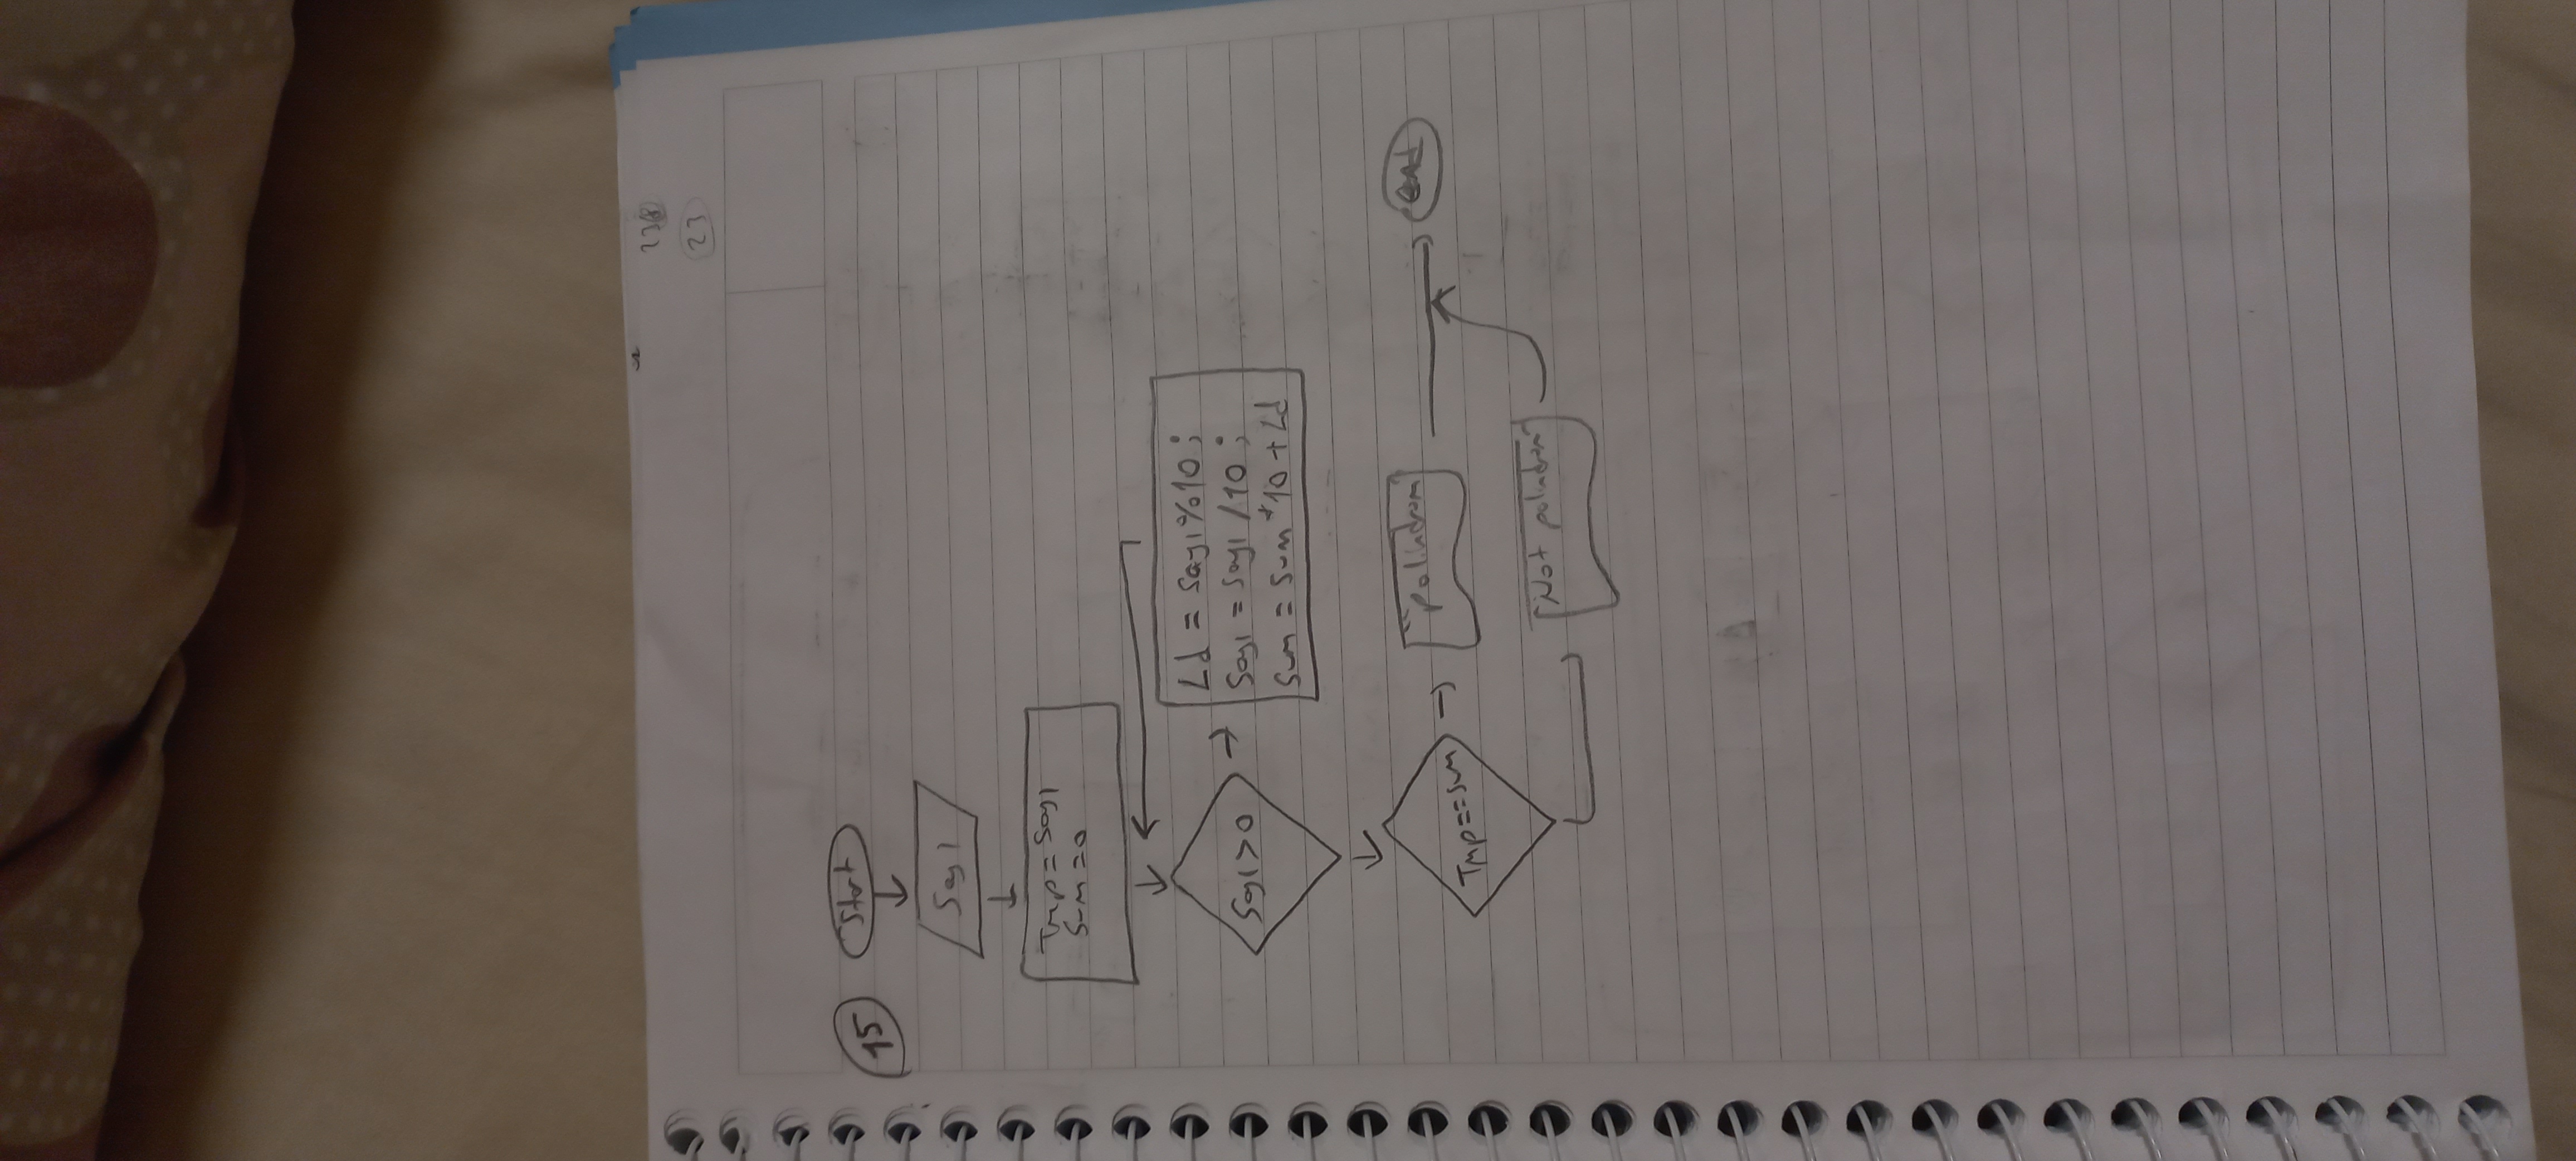 23
15
Start
Say1
Tmp = Say1
Sum = 0
Say1 > 0
Ld = Say1 % 10 ;
Say1 = Say1 / 10 ;
Sum = Sum * 10 + Ld
Tmp == Sum
"polindrom"
end
"Not polindrom"